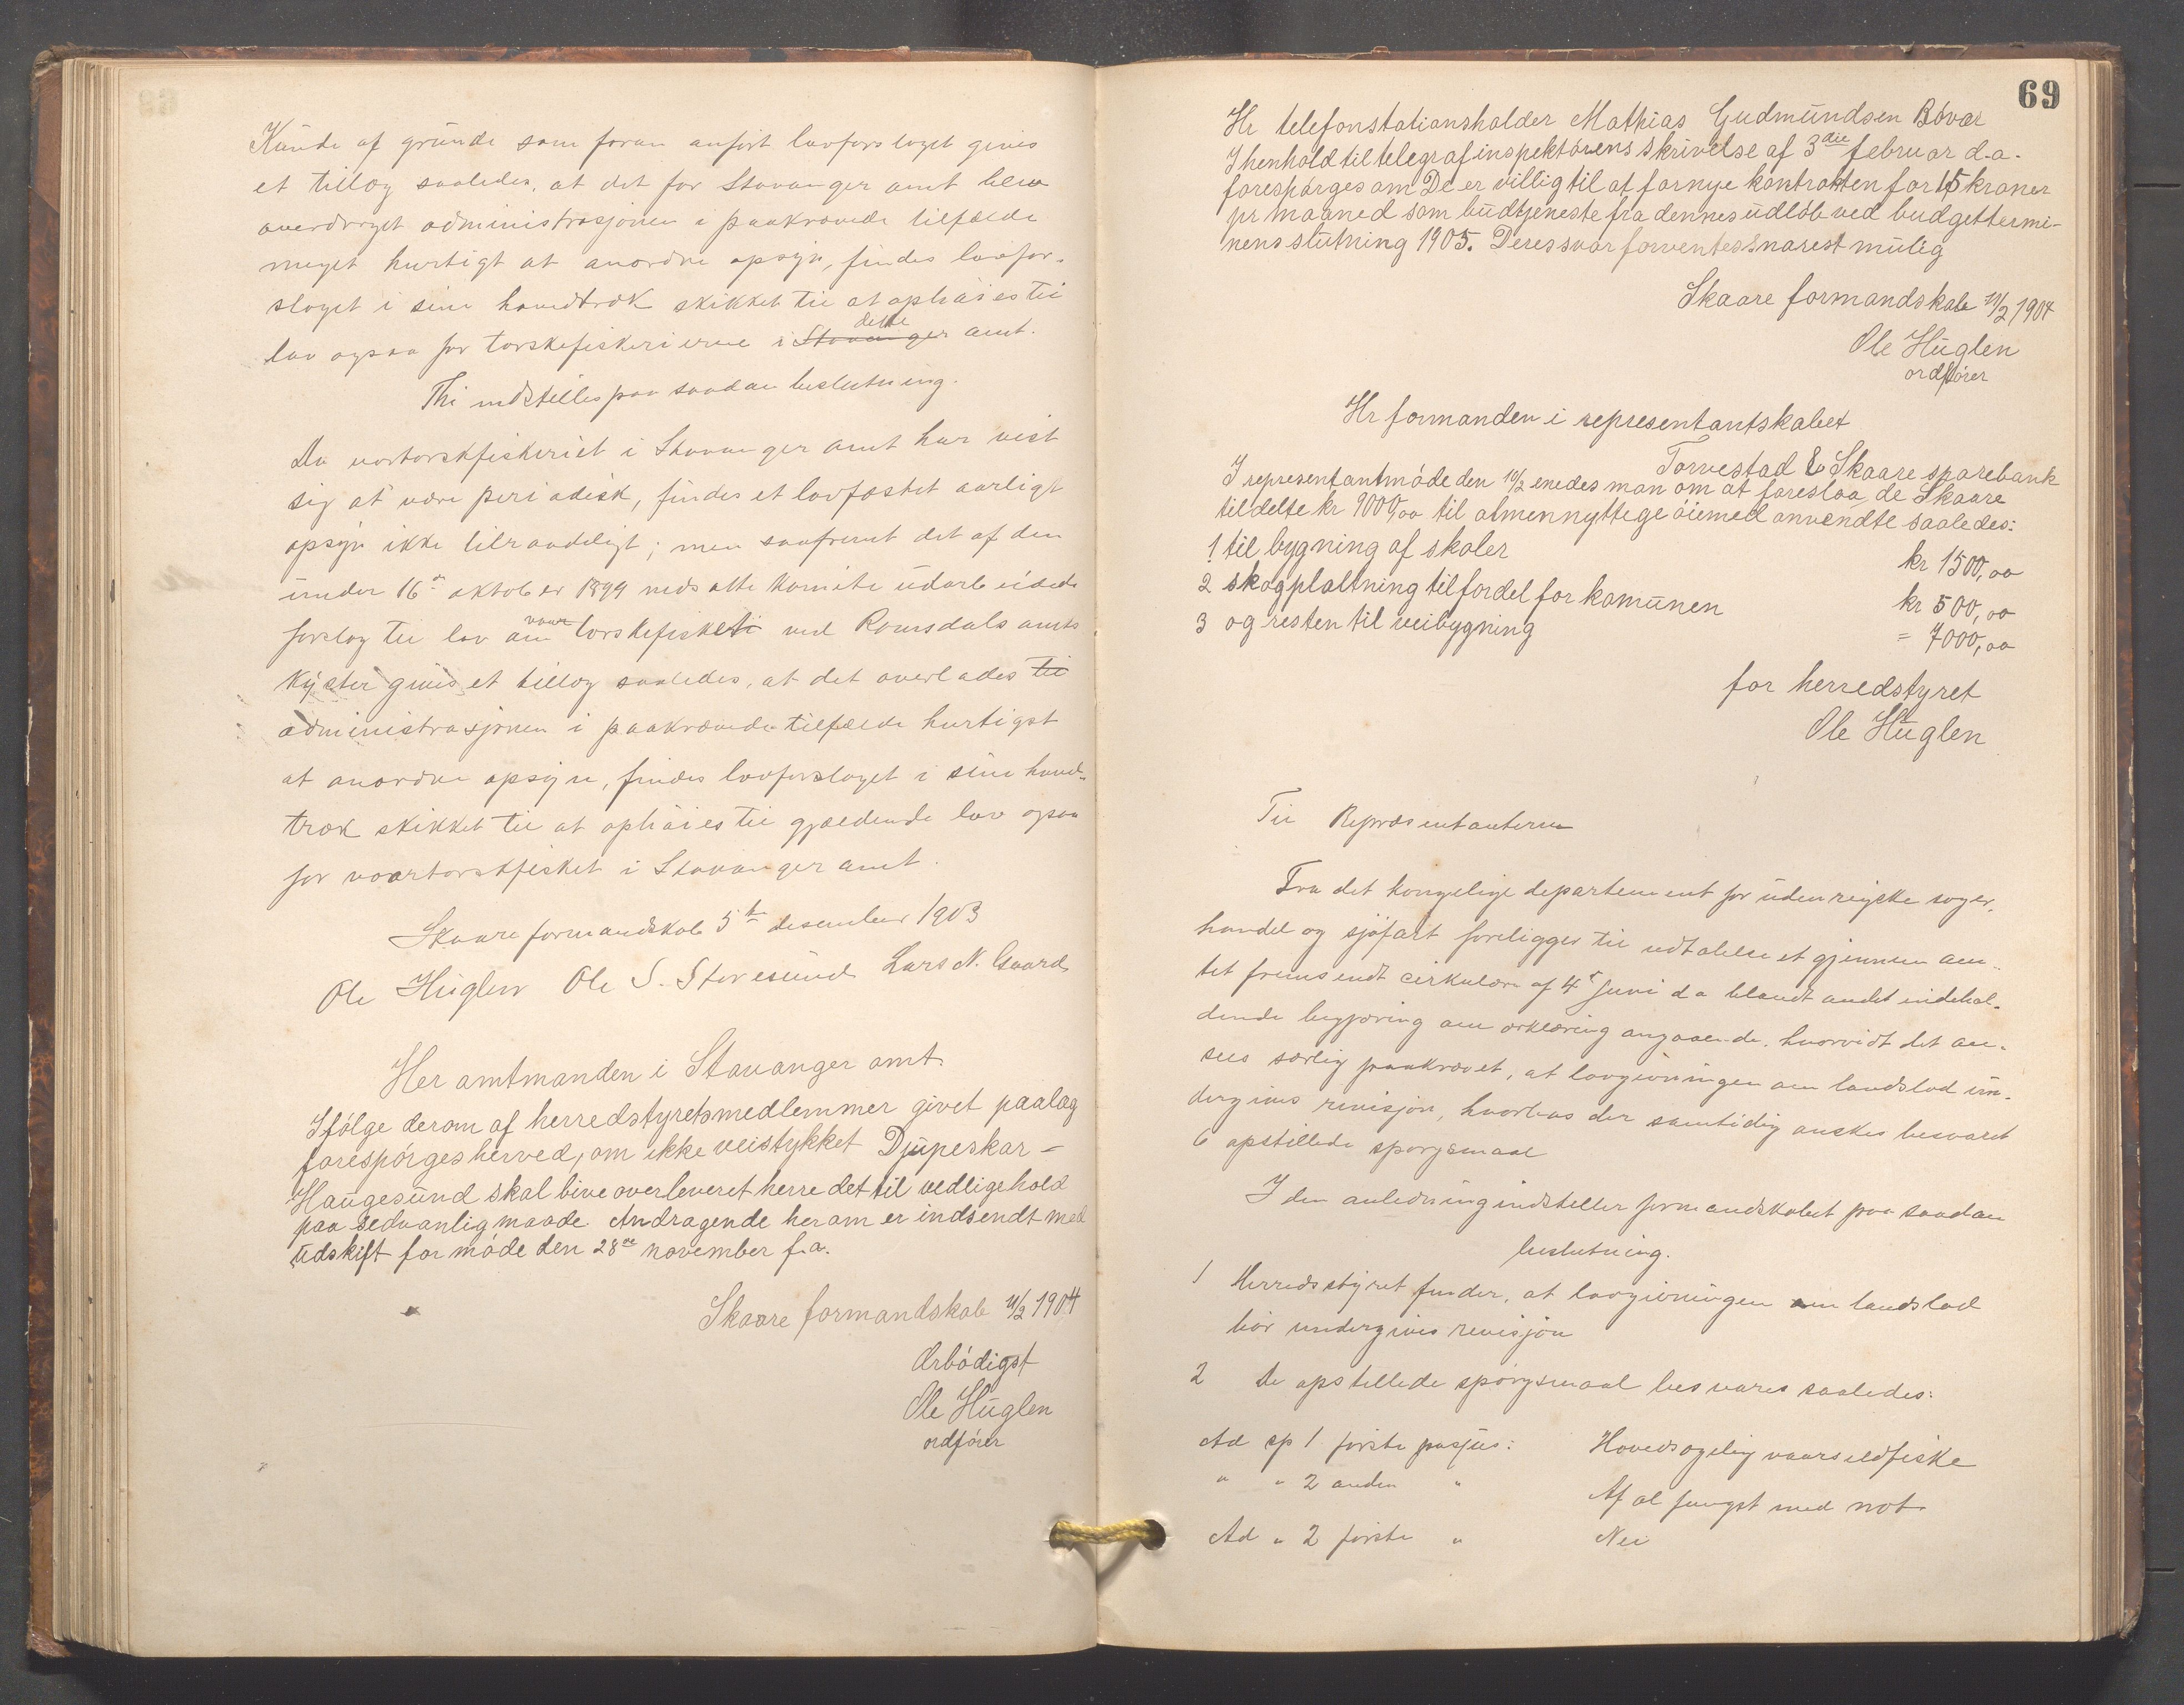 Kunde af grunde som foran anført lovforslaget gives
et tillæg saaledes, at det for Stavanger amt blev
overdraget administrasjonen i paakrævede tilfælde
meget hurtigt at anordne opsyn, findes lovfor-
slaget i sine hovedtræk skikket til at ophøies til
lov ogsaa for torskefiskerierne i Stavanger dette amt.
Thi indstilles paa saadan beslutning.
Da vaartorskfiskeriet i Stavanger amt har vist
sig at være periodisk, findes et lovfæstet aarligt
opsyn ikke tilraadeligt; men saafremt det af den
under 16de oktober 1899 nedsatte komite udarbeidede
forslag til lov om vaartorskefisketi ved Romsdals amts
kyster gives et tillæg saaledes, at det overlades til
administrasjonen i paakrævede tilfælde hurtigst
at anordne opsyn, findes lovforslaget i sine hoved-
træk skikket til at ophøies til gjældende lov ogsaa
for vaartorskfisket i Stavanger amt.
Skaare formandskab 5te desember 1903
Ole Huglen Ole S. Storesund Lars N. Gaard
Her amtmanden i Stavanger amt.
Ifølge derom af herredstyretsmedlemmer givet paalæg
forespørges herved, om ikke veistykket Djupeskar-
Haugesund skal bive overleveret herredet til vedligehold
paa sedvanlig maade. Andragende herom er indsendt med
udskift for møde den 28de november f.a.
Skaare formandskab 11/2 1904
Ærbødigst
Ole Huglen
ordfører
69
Hr telefonstationsholder Mathias Gudmundsen Bøvær
I henhold til telegrafinspektørens skrivelse af 3die februar d.a.
forespørges om De er villig til at fornye kontrakten for 15 kroner
pr maaned som budtjeneste fra dennes udløb ved budgettermi-
nens slutning 1905. Deres svar forventes snarest mulig
Skaare formandskab 11/2 1904
Ole Huglen
ordfører
Hr formanden i representantskabet
Torvestad & Skaare sparebank
I representantmøde den 10/2 enedes man om at foreslaa de Skaare
tildelte kr 9000,00 til almennyttege øiemed anvendte saaledes:
1 til bygning af skoler kr 1500,00
2 skogplaltning til fordel for komunen kr 500,00
3 og resten til veibygning = 7000,00
for herredstyret
Ole Huglen
Til Repræsentanterne
Fra det kongelige departement for udenrigske sager,
handel og sjøfart foreligger til udtalelse et gjennem am-
tet fremsendt cirkulære af 4de juni d a blandt andet indehol-
dende begjæring om ærklæring angaaende, hvorvidt det an-
sees særlig paakrævet, at lovgivningen om landslod un-
dergives revisjon, hvorhos der samtidig ønskes besvaret
6 opstillede spørgsmaal
I den anledning indstiller formandskabet paa saadan
beslutning.
1 Herredsstyret finder, at lovgivningen om landslod
bør undergives revisjon
2 De opstillede spørgsmaal besvares saaledes:
Ad sp 1 første pasjus: Hovedsagelig vaarsildfiske
" " 2 anden " Af al fangst med not
Ad " 2 første " Nei